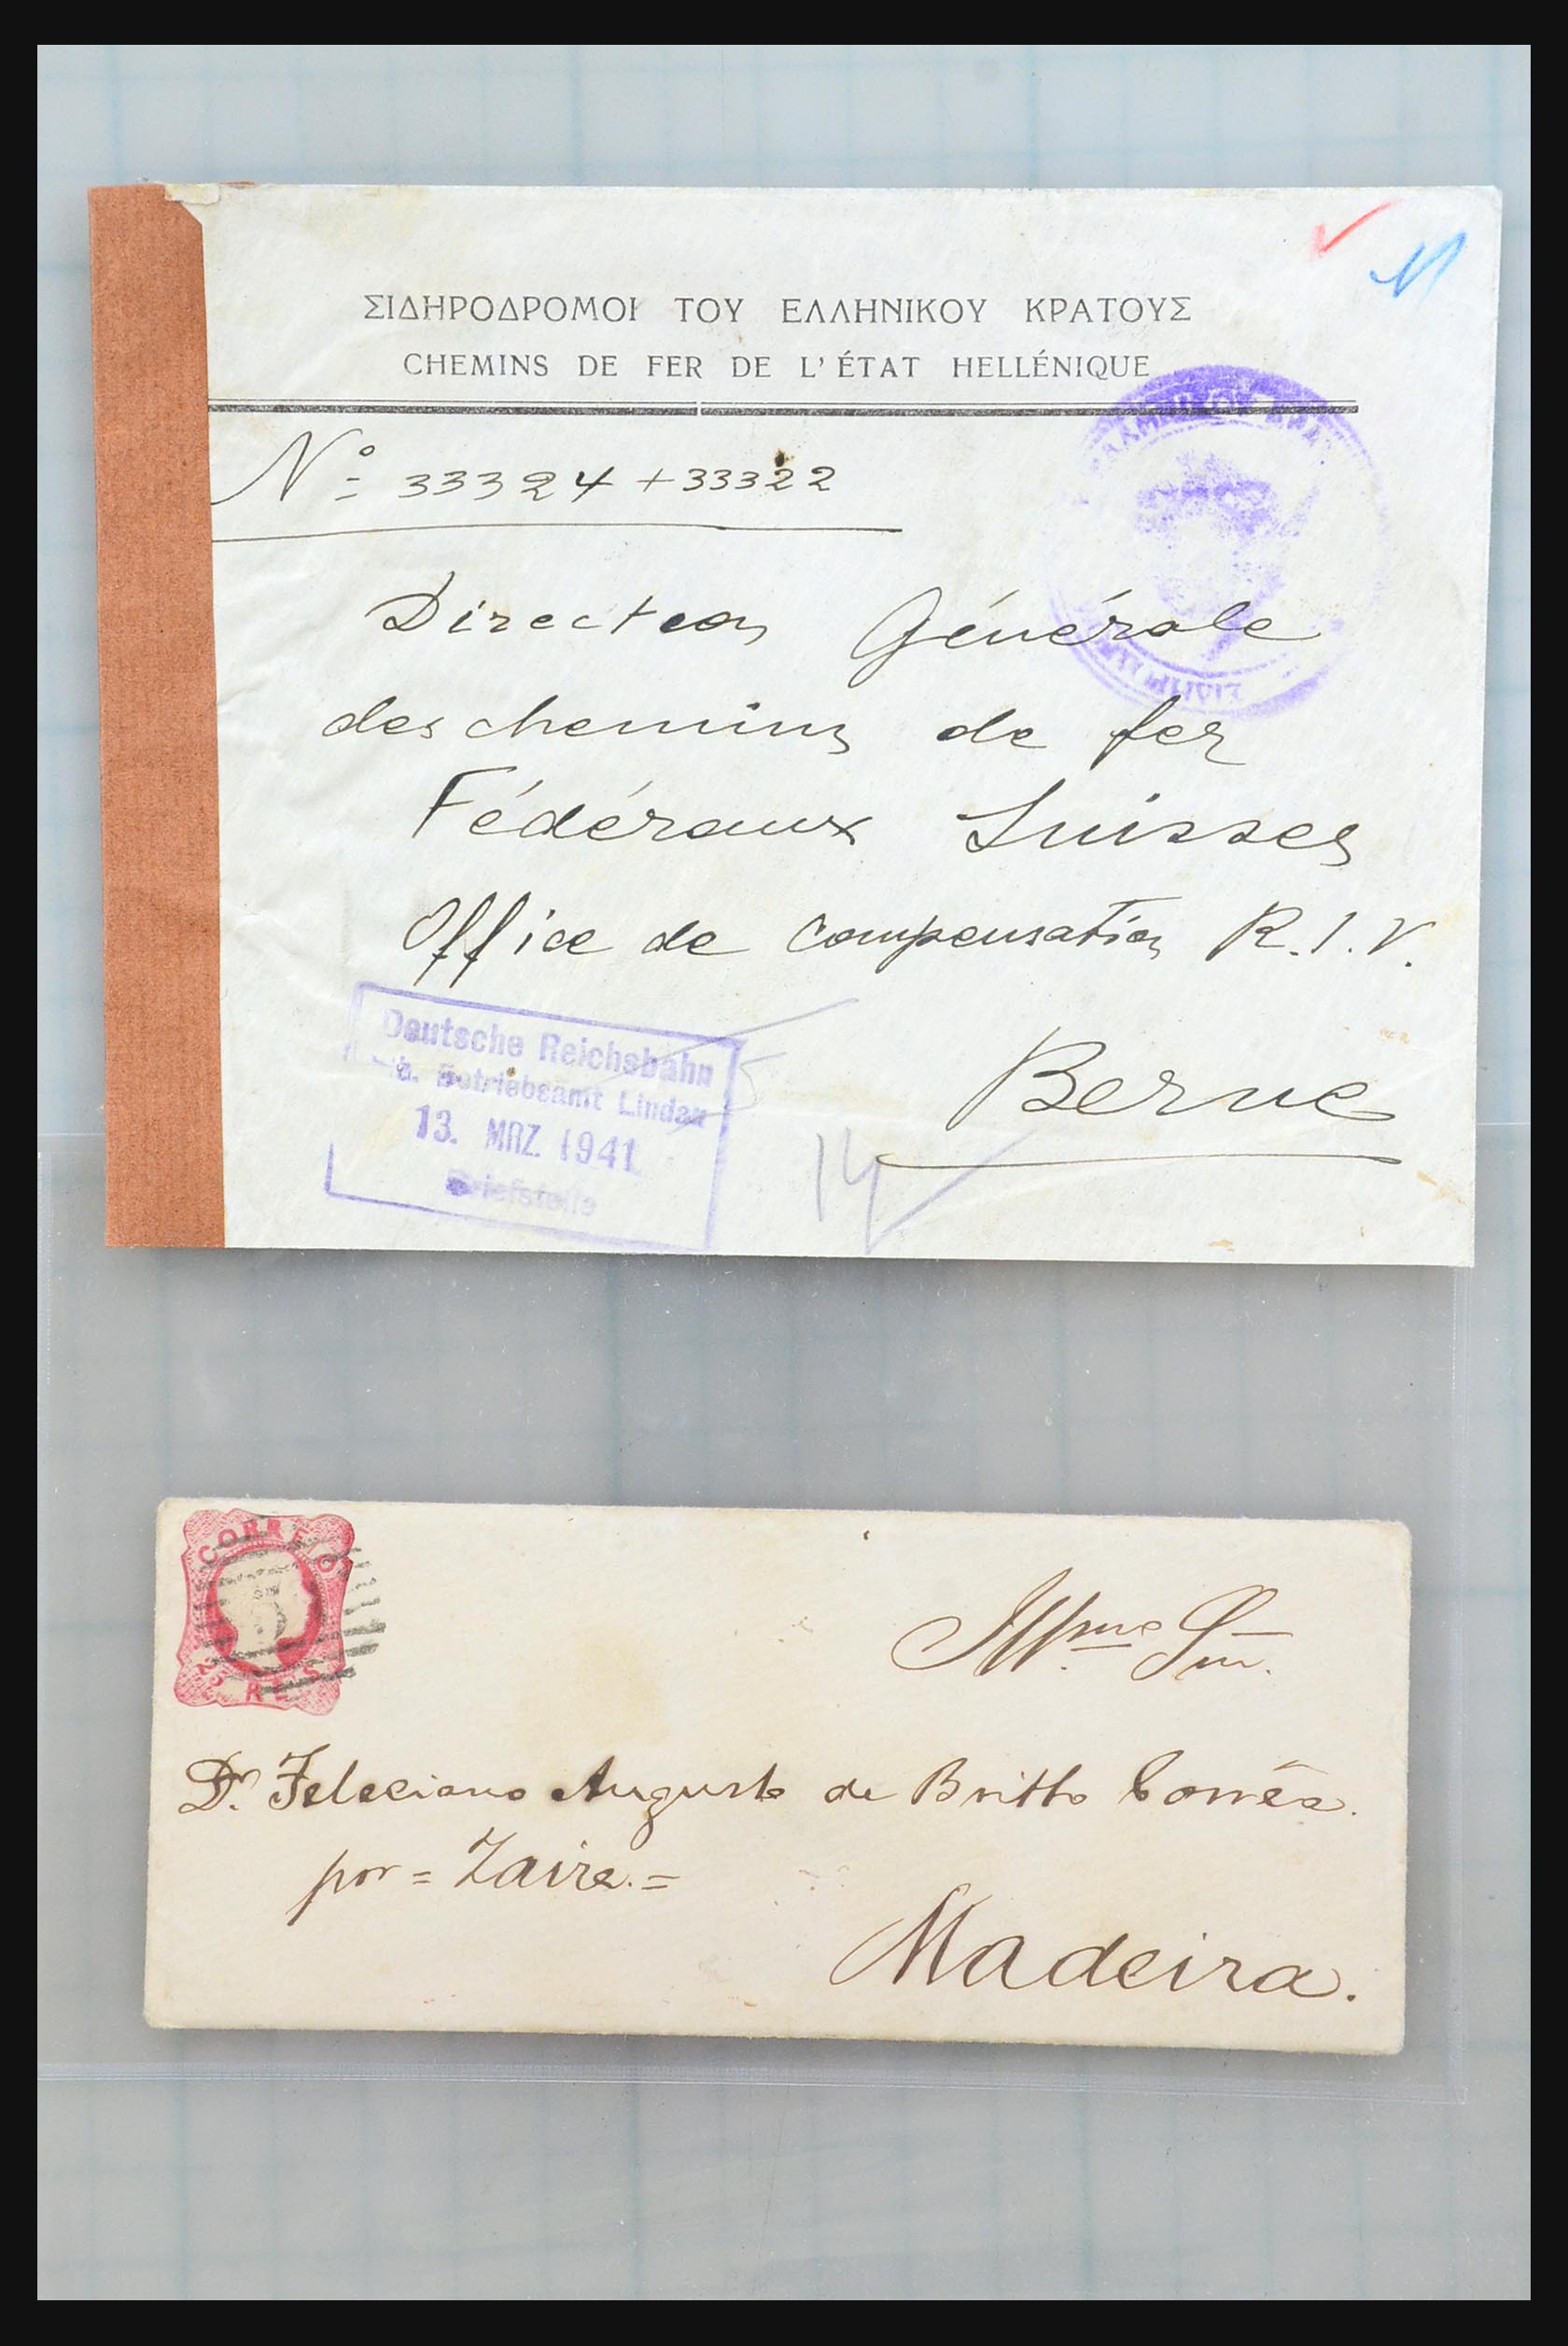 ΣΙΔΗΡΟΔΡΟΜΟΙ ΤΟΥ ΕΛΛΗΝΙΚΟΥ ΚΡΑΤΟΥΣ
CHEMINS DE FER DE L' ÉTAT HELLÉNIQUE
Nº 33324 + 33322
Direction Générale
des chemins de fer
Fédéraux Suisses
Office de compensation R.I.V.
Berne
Deutsche Reichsbahn
Betriebsamt Lindau
13. MRZ. 1941
Briefstelle
14
CORREIO
25 REIS
Illmo Snr.
Dr. Feleciano Augusto de Britto Corrêa.
por = Zaire. =
Madeira.